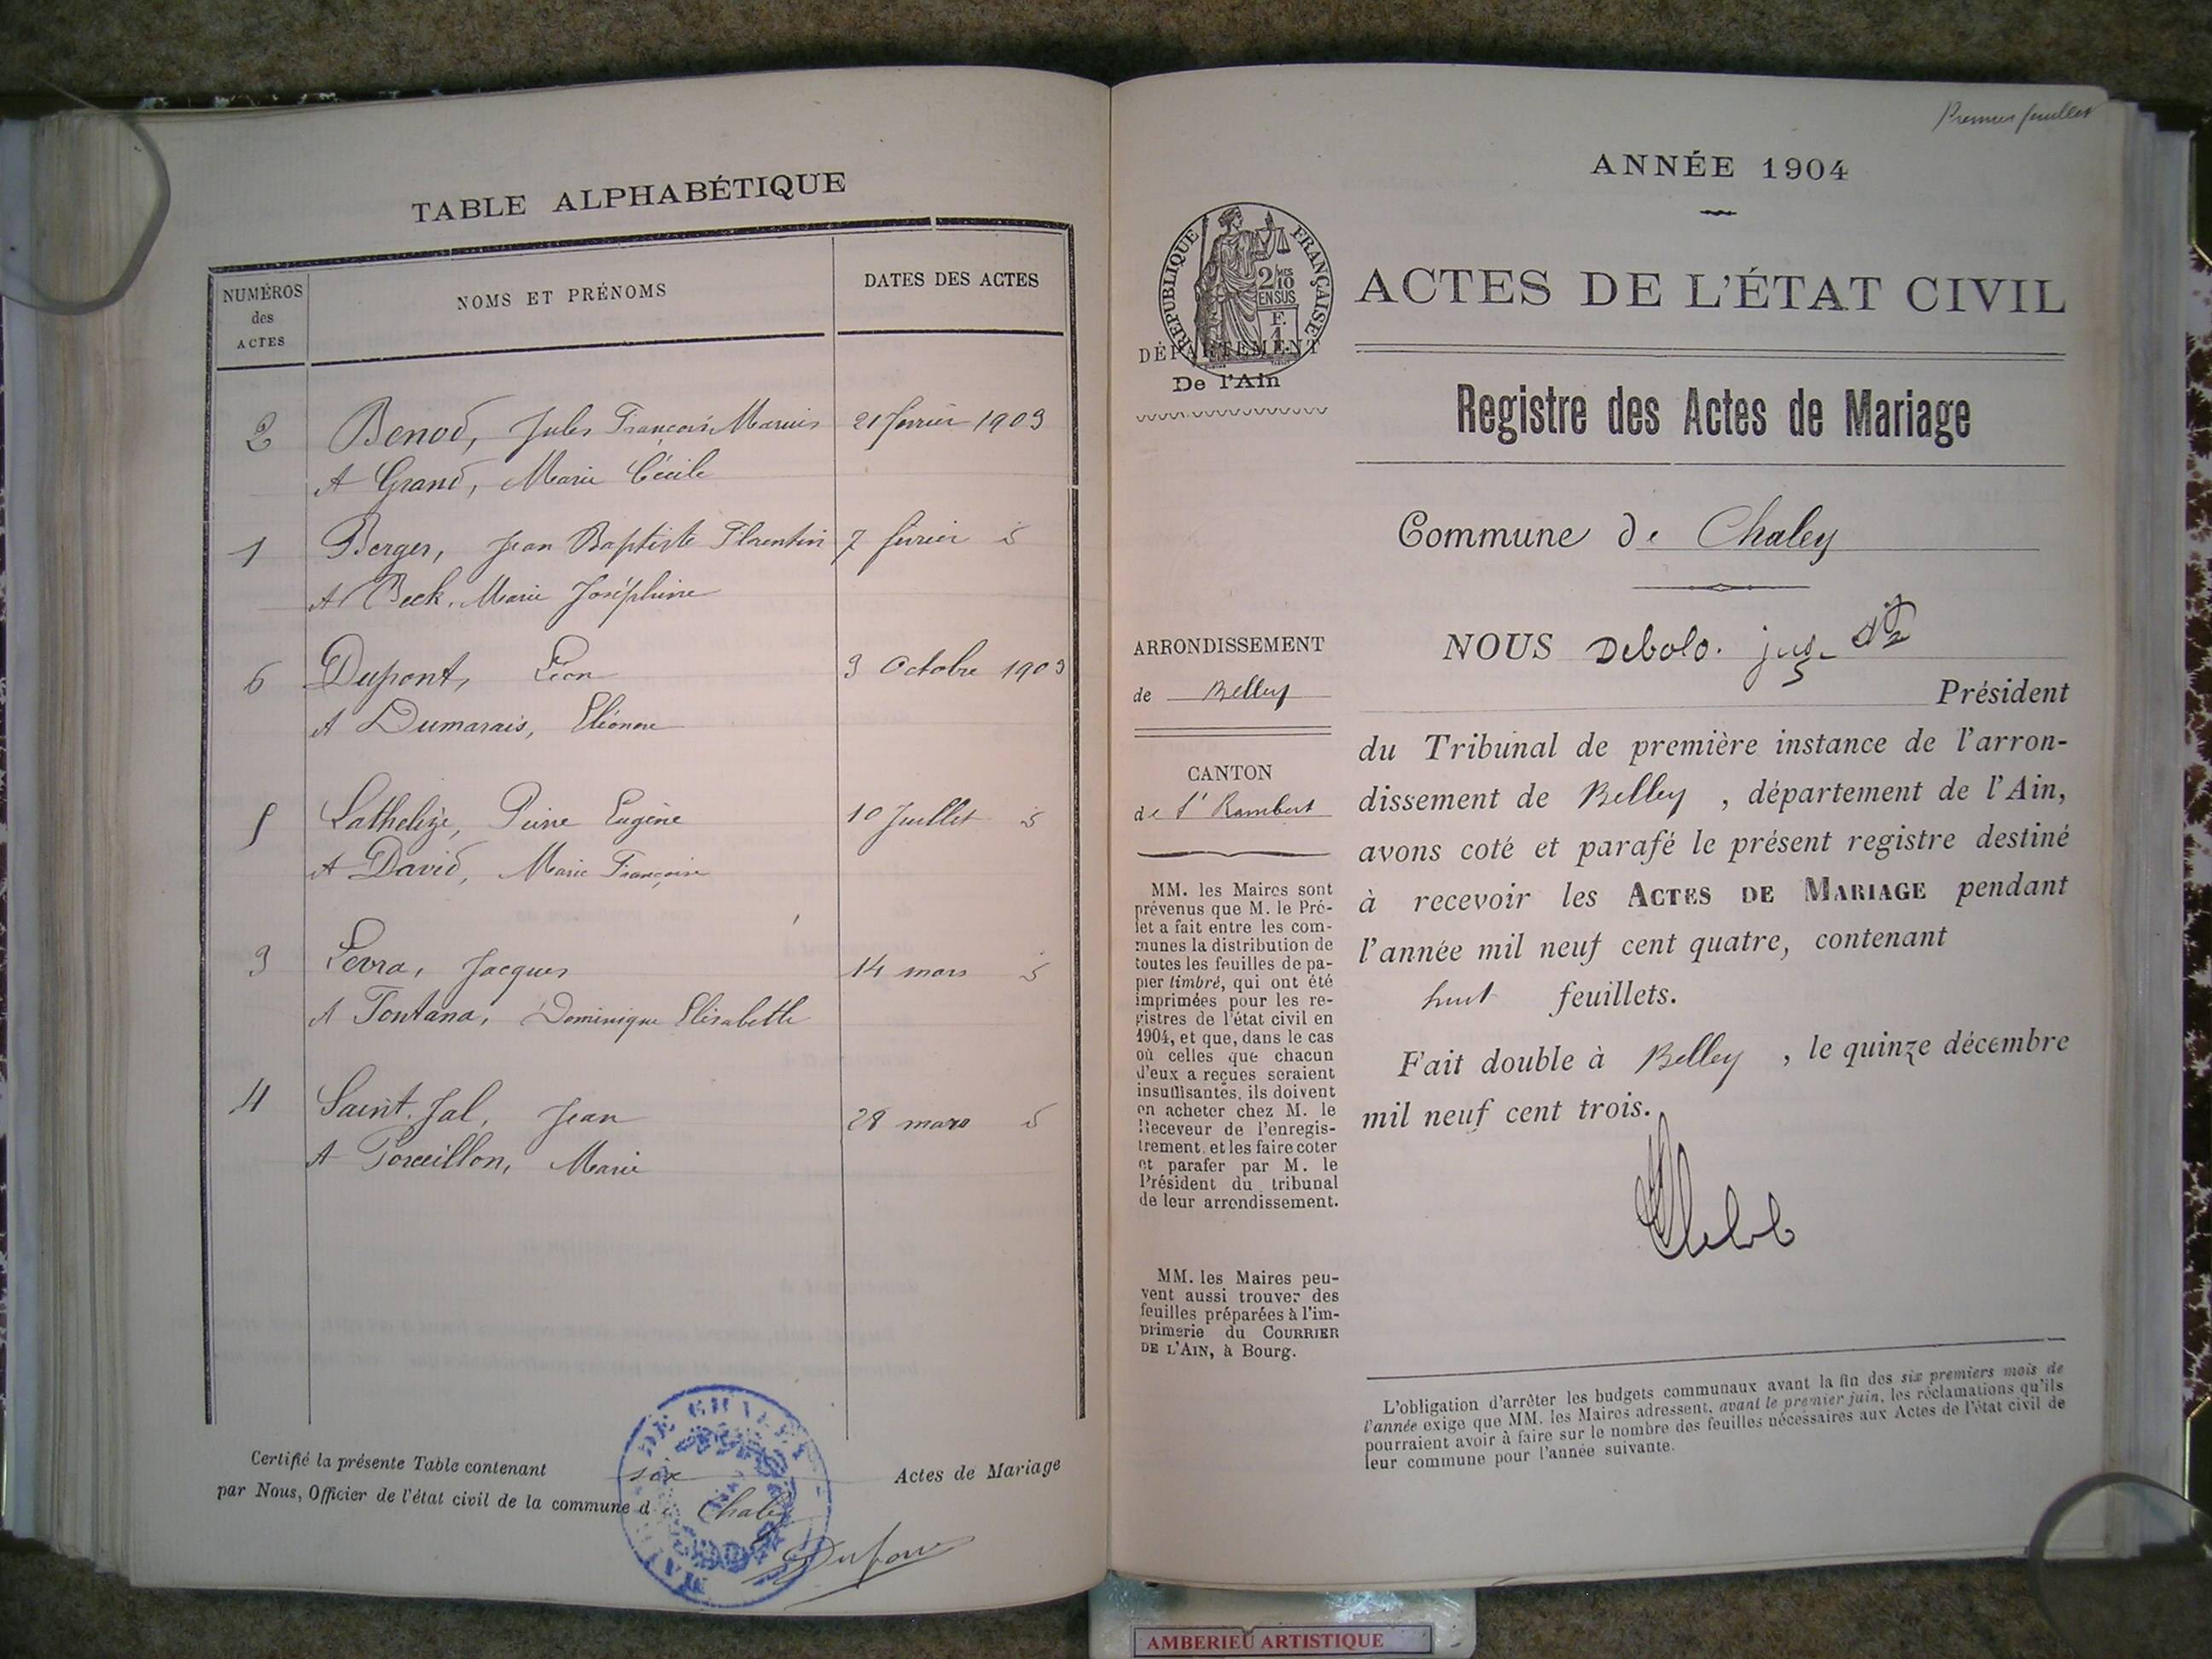 TABLE ALPHABÉTIQUE
NUMÉROS
des
ACTES
NOMS ET PRÉNOMS
DATES DES ACTES
2 Benod, Jules François Marius 21 février 1903
A Grand, Marie Cécile
1 Berger, Jean Baptiste Florentin 7 février id
A Beck, Marie Joséphine
6 Dupont, Léon 3 Octobre 1903
A Dumarais, Eléonore
5 Lathelize, Pierre Eugène 10 Juillet id
A David, Marie Françoise
3 Levra, Jacques 14 mars id
A Fontana, Dominique Elisabette
4 Saint. Jal, Jean 28 mars id
A Porceillon, Marie
Certifié la présente Table contenant six Actes de Mariage
par Nous, Officier de l'état civil de la commune de Chaley
Dufour
Premier feuillet
ANNÉE 1904
RÉPUBLIQUE FRANÇAISE
2/10
EN SUS
F.
1.
DÉPARTEMENT
De l'Ain
ACTES DE L'ÉTAT CIVIL
Registre des Actes de Mariage
Commune de Chaley
ARRONDISSEMENT
de Belley
CANTON
de St Rambert
MM. les Maires sont
prévenus que M. le Pré-
fet a fait entre les com-
munes la distribution de
toutes les feuilles de pa-
pier timbré, qui ont été
imprimées pour les re-
gistres de l'état civil en
1904, et que, dans le cas
où celles que chacun
d'eux a reçues seraient
insuffisantes, ils doivent
en acheter chez M. le
Receveur de l'enregis-
trement, et les faire coter
et parafer par M. le
Président du tribunal
de leur arrondissement.
MM. les Maires peu-
vent aussi trouver des
feuilles préparées à l'im-
primerie du COURRIER
DE L'AIN, à Bourg.
NOUS Debolo. juge
Président
du Tribunal de première instance de l'arron-
dissement de Belley, département de l'Ain,
avons coté et parafé le présent registre destiné
à recevoir les ACTES DE MARIAGE pendant
l'année mil neuf cent quatre, contenant
huit feuillets.
Fait double à Belley, le quinze décembre
mil neuf cent trois.
L'obligation d'arrêter les budgets communaux avant la fin des six premiers mois de
l'année exige que MM. les Maires adressent, avant le premier juin, les réclamations qu'ils
pourraient avoir à faire sur le nombre des feuilles nécessaires aux Actes de l'état civil de
leur commune pour l'année suivante.
AMBERIEU ARTISTIQUE